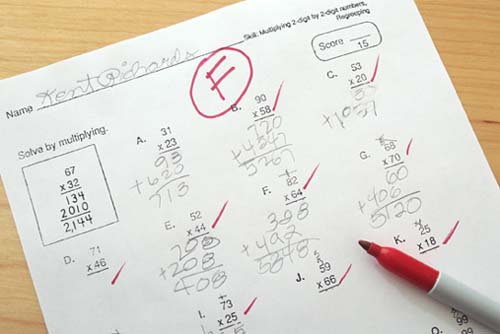 Skill: Multiplying 2-digit by 2-digit numbers,
Regrouping
Name Kent Richards
F
Score 15
Solve by multiplying.
67
x 32
134
2010
2,144
A. 31
x 23
93
+ 620
713
B. 90
x 58
720
C. 53
x 20
D. 71
x 46
E. 52
x 44
+ 208
408
F. 82
x 64
+ 492
G. 68
x 70
00
5120
I. 73
x 25
J. 59
x 66
K. 25
x 18
99